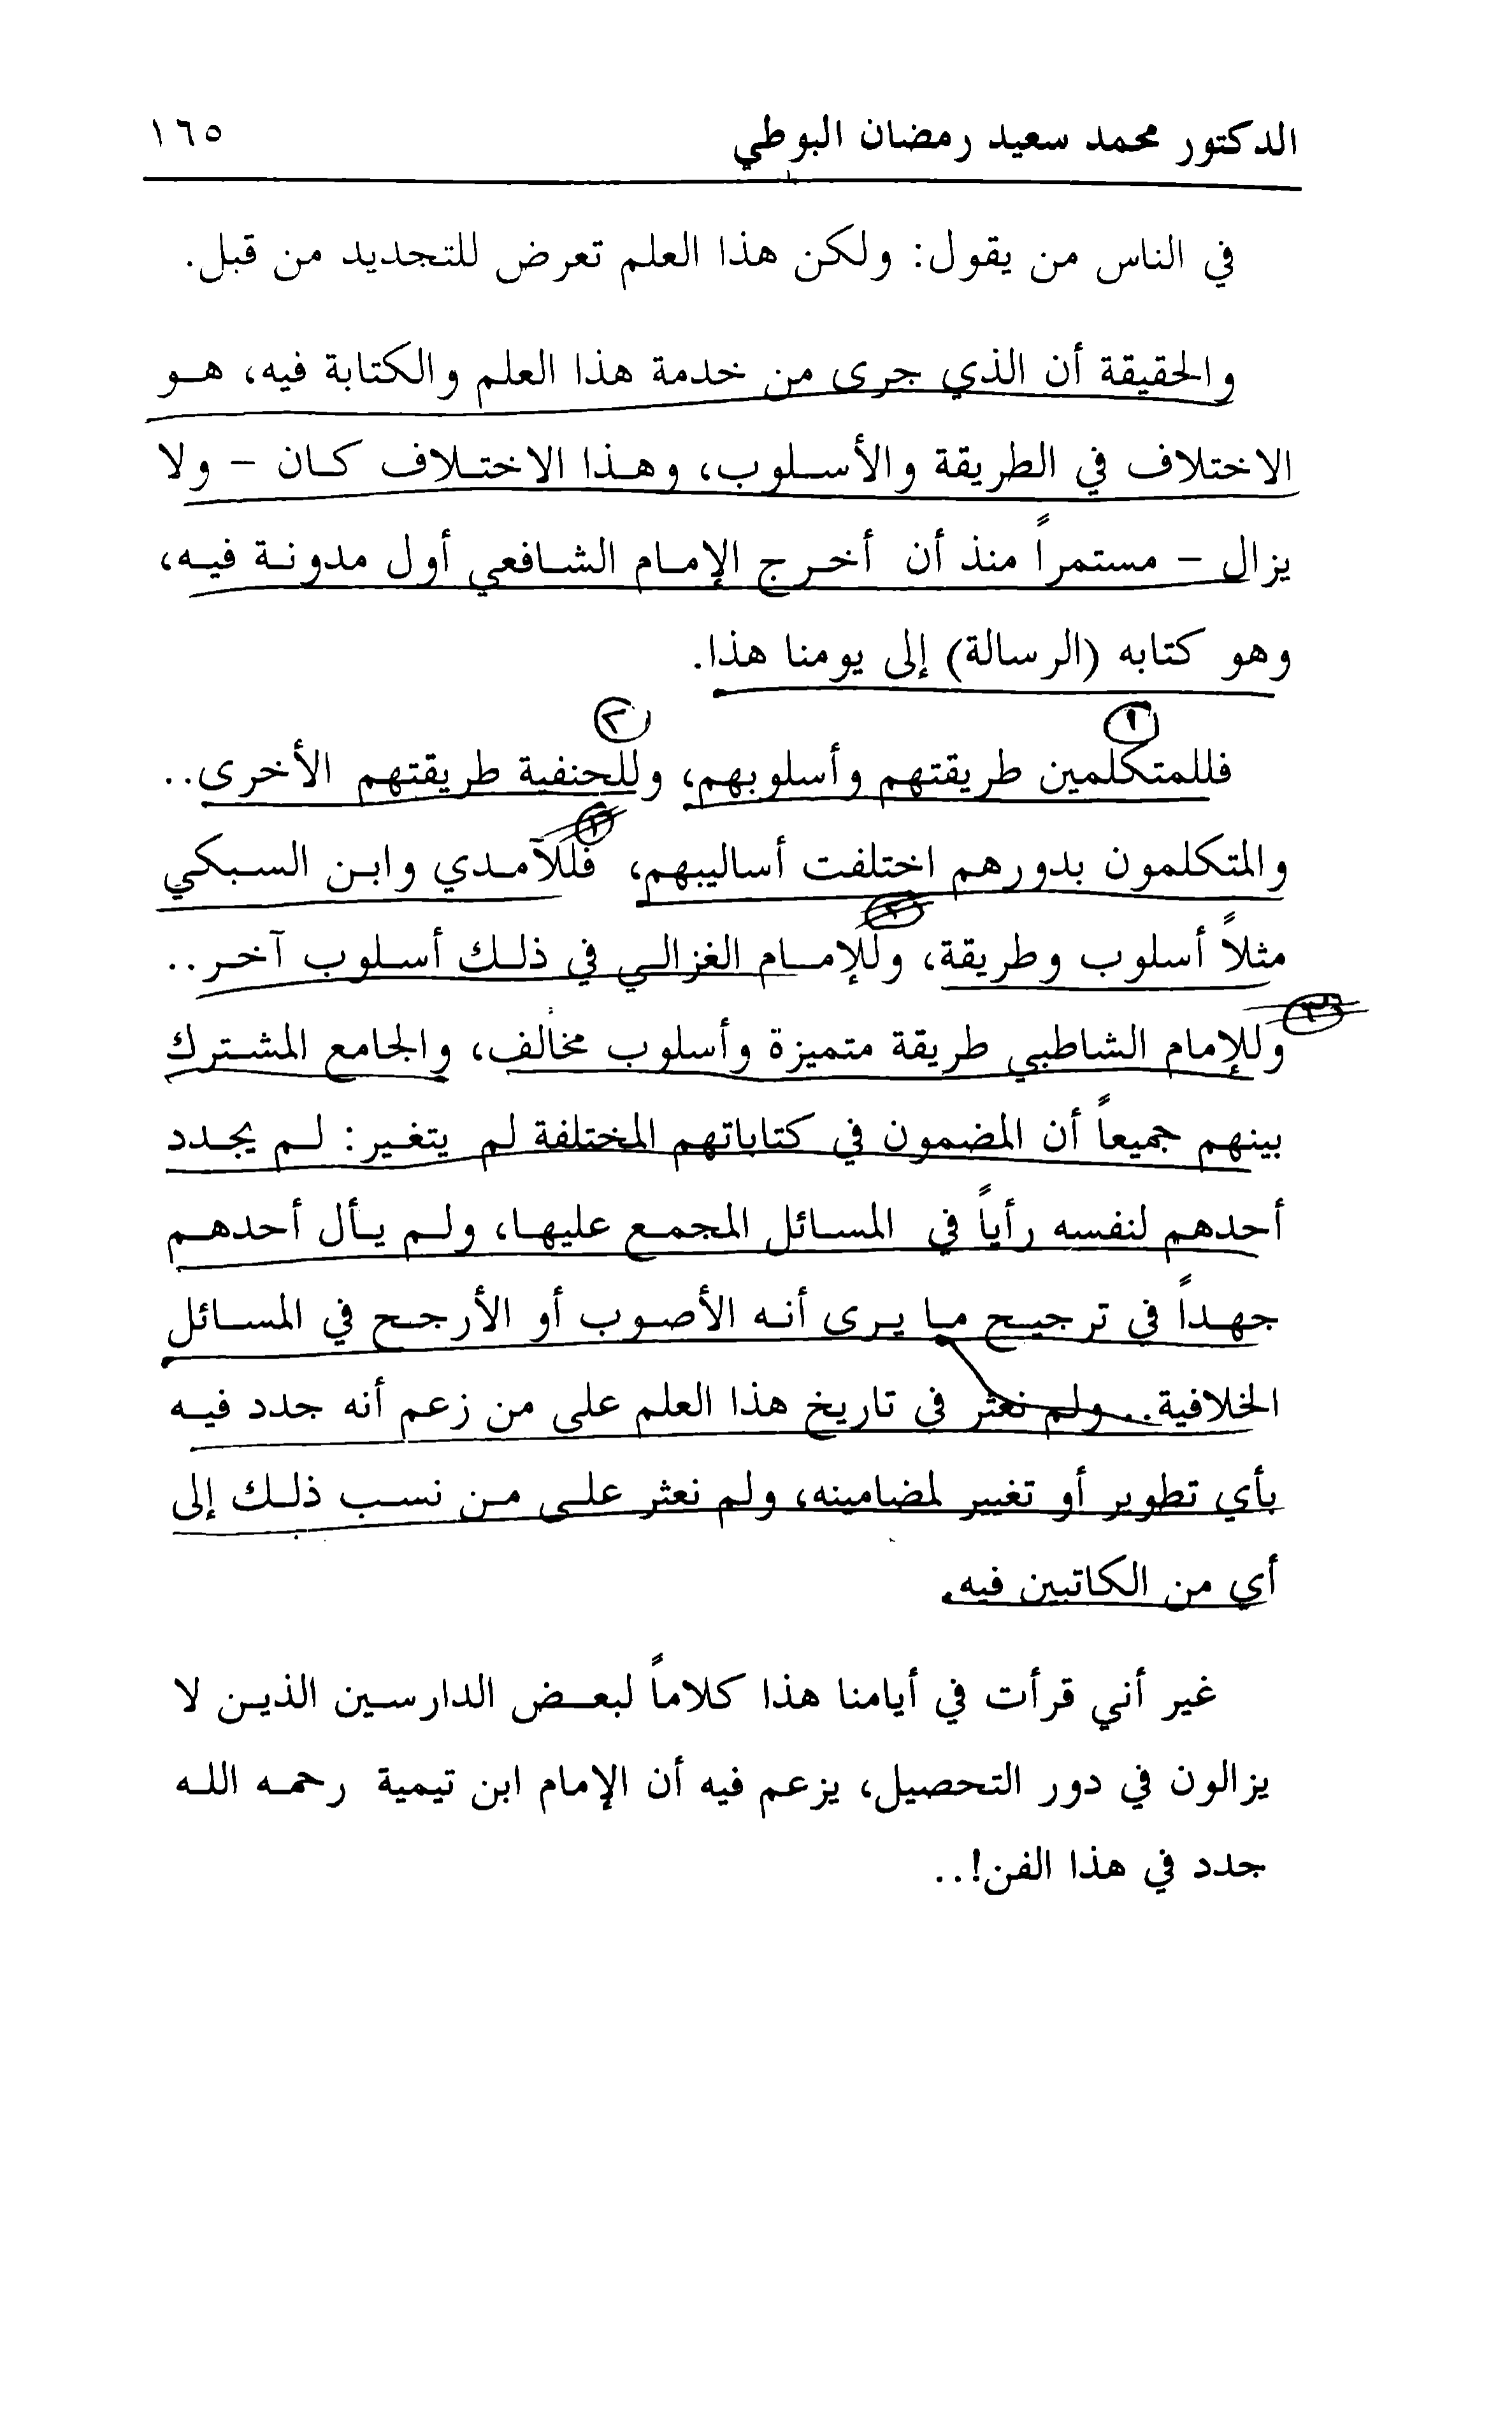 الدكتور محمد سعيد رمضان البوطي ١٦٥
في الناس من يقول: ولكن هذا العلم تعرض للتجديد من قبل.
والحقيقة أن الذي جرى من خدمة هذا العلم والكتابة فيه، هو
الاختلاف في الطريقة والأسلوب، وهذا الاختلاف كان - ولا
يزال - مستمراً منذ أن أخرج الإمام الشافعي أول مدونة فيه،
وهو كتابه (الرسالة) إلى يومنا هذا.
١ ٢
فللمتكلمين طريقتهم وأسلوبهم، وللحنفية طريقتهم الأخرى..
١
والمتكلمون بدورهم اختلفت أساليبهم، فللآمدي وابن السبكي
٢
مثلاً أسلوب وطريقة، وللإمام الغزالي في ذلك أسلوب آخر..
٣
وللإمام الشاطبي طريقة متميزة وأسلوب مخالف، والجامع المشترك
بينهم جميعاً أن المضمون في كتاباتهم المختلفة لم يتغير: لم يجدد
أحدهم لنفسه رأياً في المسائل المجمع عليها، ولم يأل أحدهم
جهداً في ترجيح ما يرى أنه الأصوب أو الأرجح في المسائل
الخلافية.. ولم نعثر في تاريخ هذا العلم على من زعم أنه جدد فيه
بأي تطوير أو تغيير لمضامينه، ولم نعثر على من نسب ذلك إلى
أي من الكاتبين فيه.
غير أني قرأت في أيامنا هذا كلاماً لبعض الدارسين الذين لا
يزالون في دور التحصيل، يزعم فيه أن الإمام ابن تيمية رحمه الله
جدد في هذا الفن!..